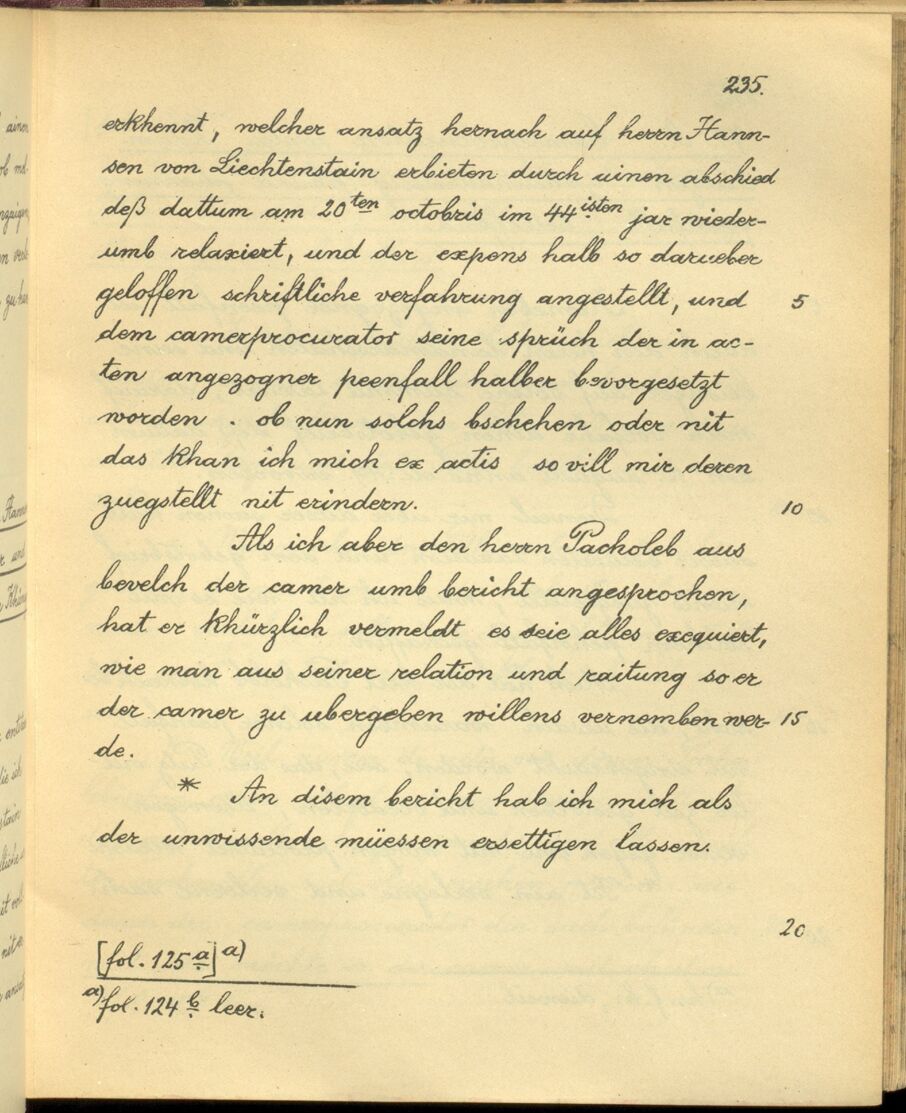 235.
erkhennt, welcher ansatz hernach auf herrn Hann-
sen von Liechtenstain erbieten durch ainen abschied
deß dattum am 20ten octobris im 44isten jar wieder-
umb relaxiert, und der expens halb so darueber
geloffen schriftliche verfahrung angestellt, und 5
dem camerprocurator seine sprüch der in ac-
ten angezogner peenfall halber bevorgesetzt
worden. ob nun solchs bschehen oder nit
das khan ich mich ex actis so vill mir deren
zuegstellt nit erindern. 10
Als ich aber den herrn Pacholeb aus
bevelch der camer umb bericht angesprochen,
hat er khürzlich vermeldt es seie alles exequiert,
wie man aus seiner relation und raitung so er
der camer zu ubergeben willens vernemben wer- 15
de.
* An disem bericht hab ich mich als
der unwissende müessen ersettigen lassen.
20
[fol. 125 a] a)
a) fol. 124 b leer.